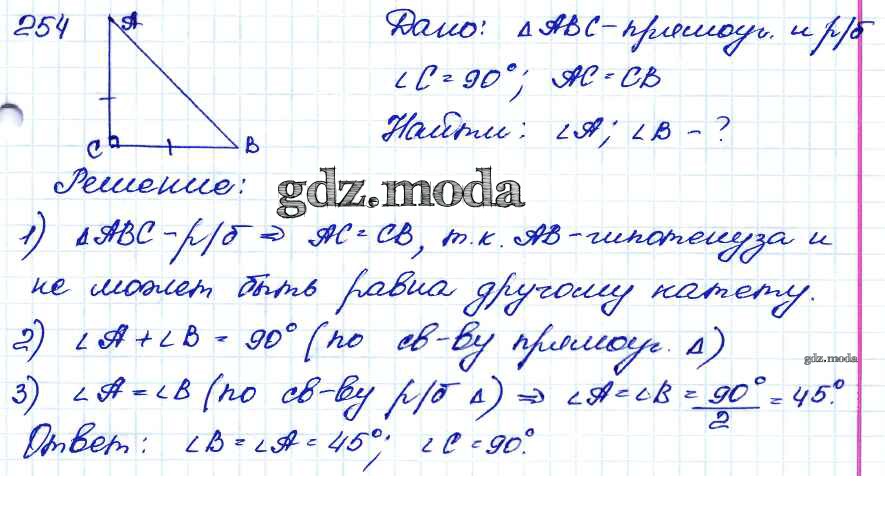 254 A Дано: ΔABC - прямоуг. и р/б
∠C = 90°; AC = CB
C B Найти: ∠A; ∠B - ?
Решение:
gdz.moda
1) ΔABC - р/б ⇒ AC = CB, т.к. AB - гипотенуза и
не может быть равна другому катету.
2) ∠A + ∠B = 90° (по св-ву прямоуг. Δ)
gdz.moda
3) ∠A = ∠B (по св-ву р/б Δ) ⇒ ∠A = ∠B = 90°/2 = 45°.
Ответ: ∠B = ∠A = 45°; ∠C = 90°.